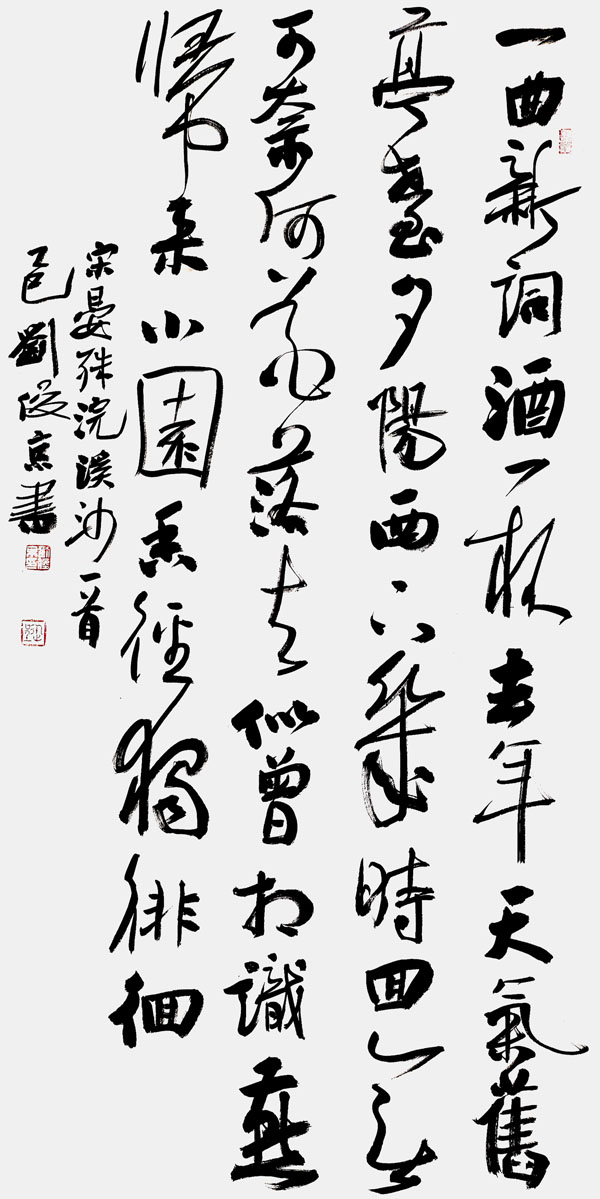 一曲新詞酒一杯去年天氣舊
亭臺夕陽西下幾時回無
可奈何花落去似曾相識燕
歸來小園香徑獨徘徊
宋晏殊浣溪沙一首
乙巳劉俊京書